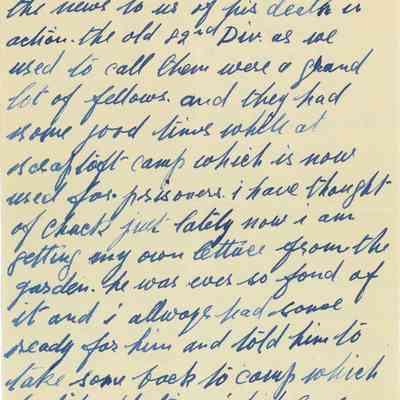 the news to us of his death in
action. the old 82nd Div. as we
used to call them were a grand
lot of fellows. and they had
some good times while at
scraptoft camp which is now
used for. prisoners. i have thought
of Chuck just lately now i am
getting my own lettace from. the
garden. he was ever so fond of
it and i allways had some
ready for him and told him to
take some back to camp which